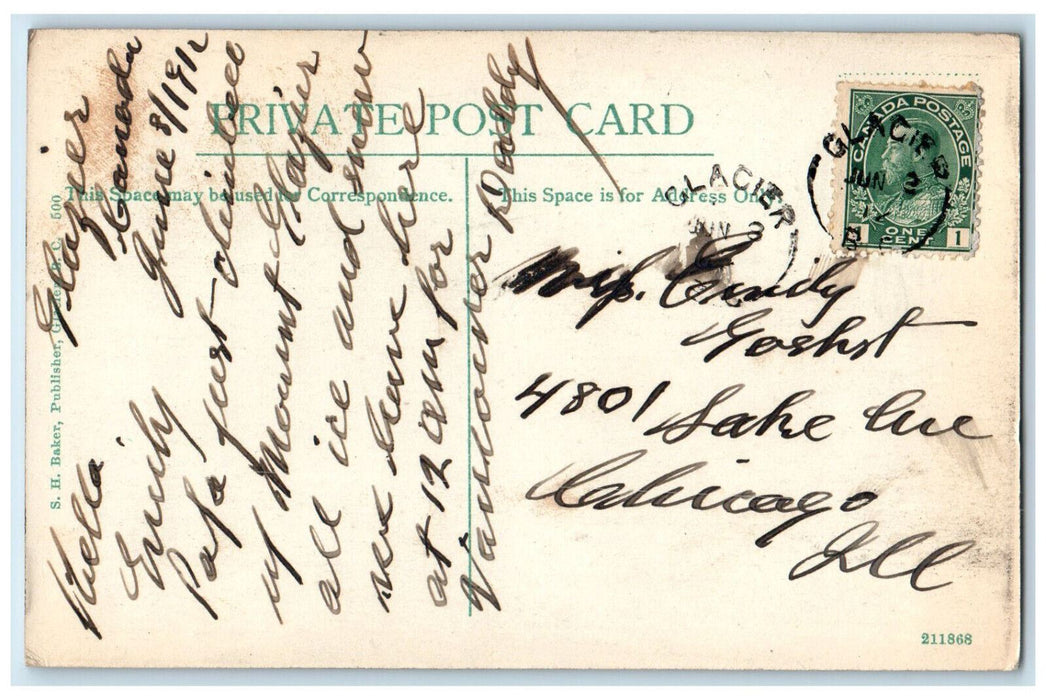 PRIVATE POST CARD
This Space may be used for Correspondence.
This Space is for Address Only
S. H. Baker, Publisher, Glacier, B. C. 500
Glazier
Canada
June 3/1912
Hello
Emily
Papa just climbed
up Mount Glazier
all ice and snow
we leave here
at 12 am for
Vancouver Daddy
CANADA POSTAGE
1 ONE CENT 1
GLACIER
JUN 3
12
GLACIER
JUN 3
Miss. Emily
4801 Lake Ave
Chicago
Ill
211868